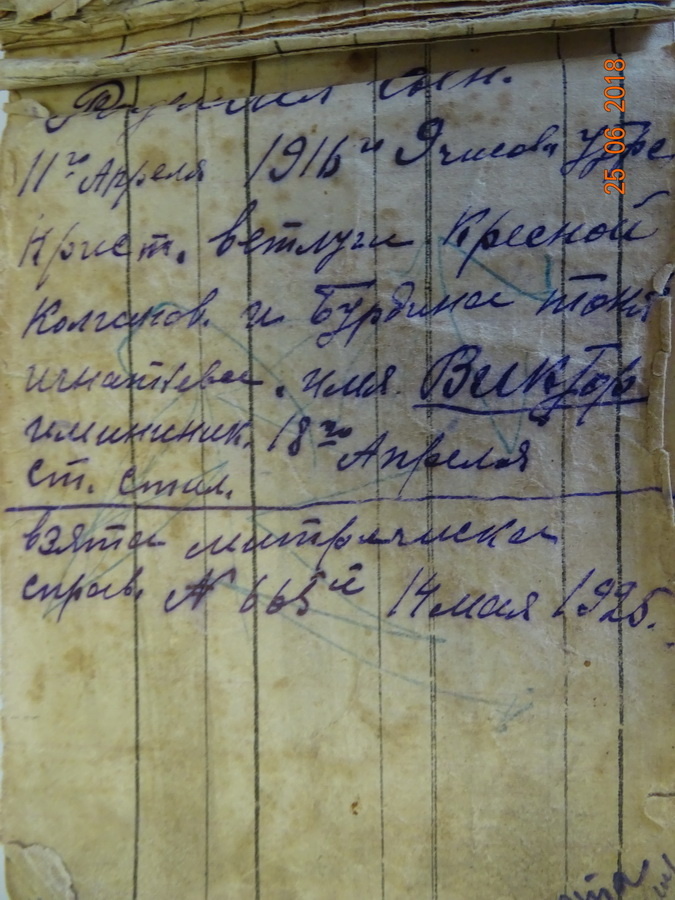 Родился сын.
11го Апреля 1916 г 9 часов утра
Крист. ветлуги Кресной
Колчанов. и Бурдина тон
игнатьева. имя Виктор
именинник. 18го Апреля
ст. стил.
взята митрическа
справ. № 665й 14 мая 1925.
25 06 2018